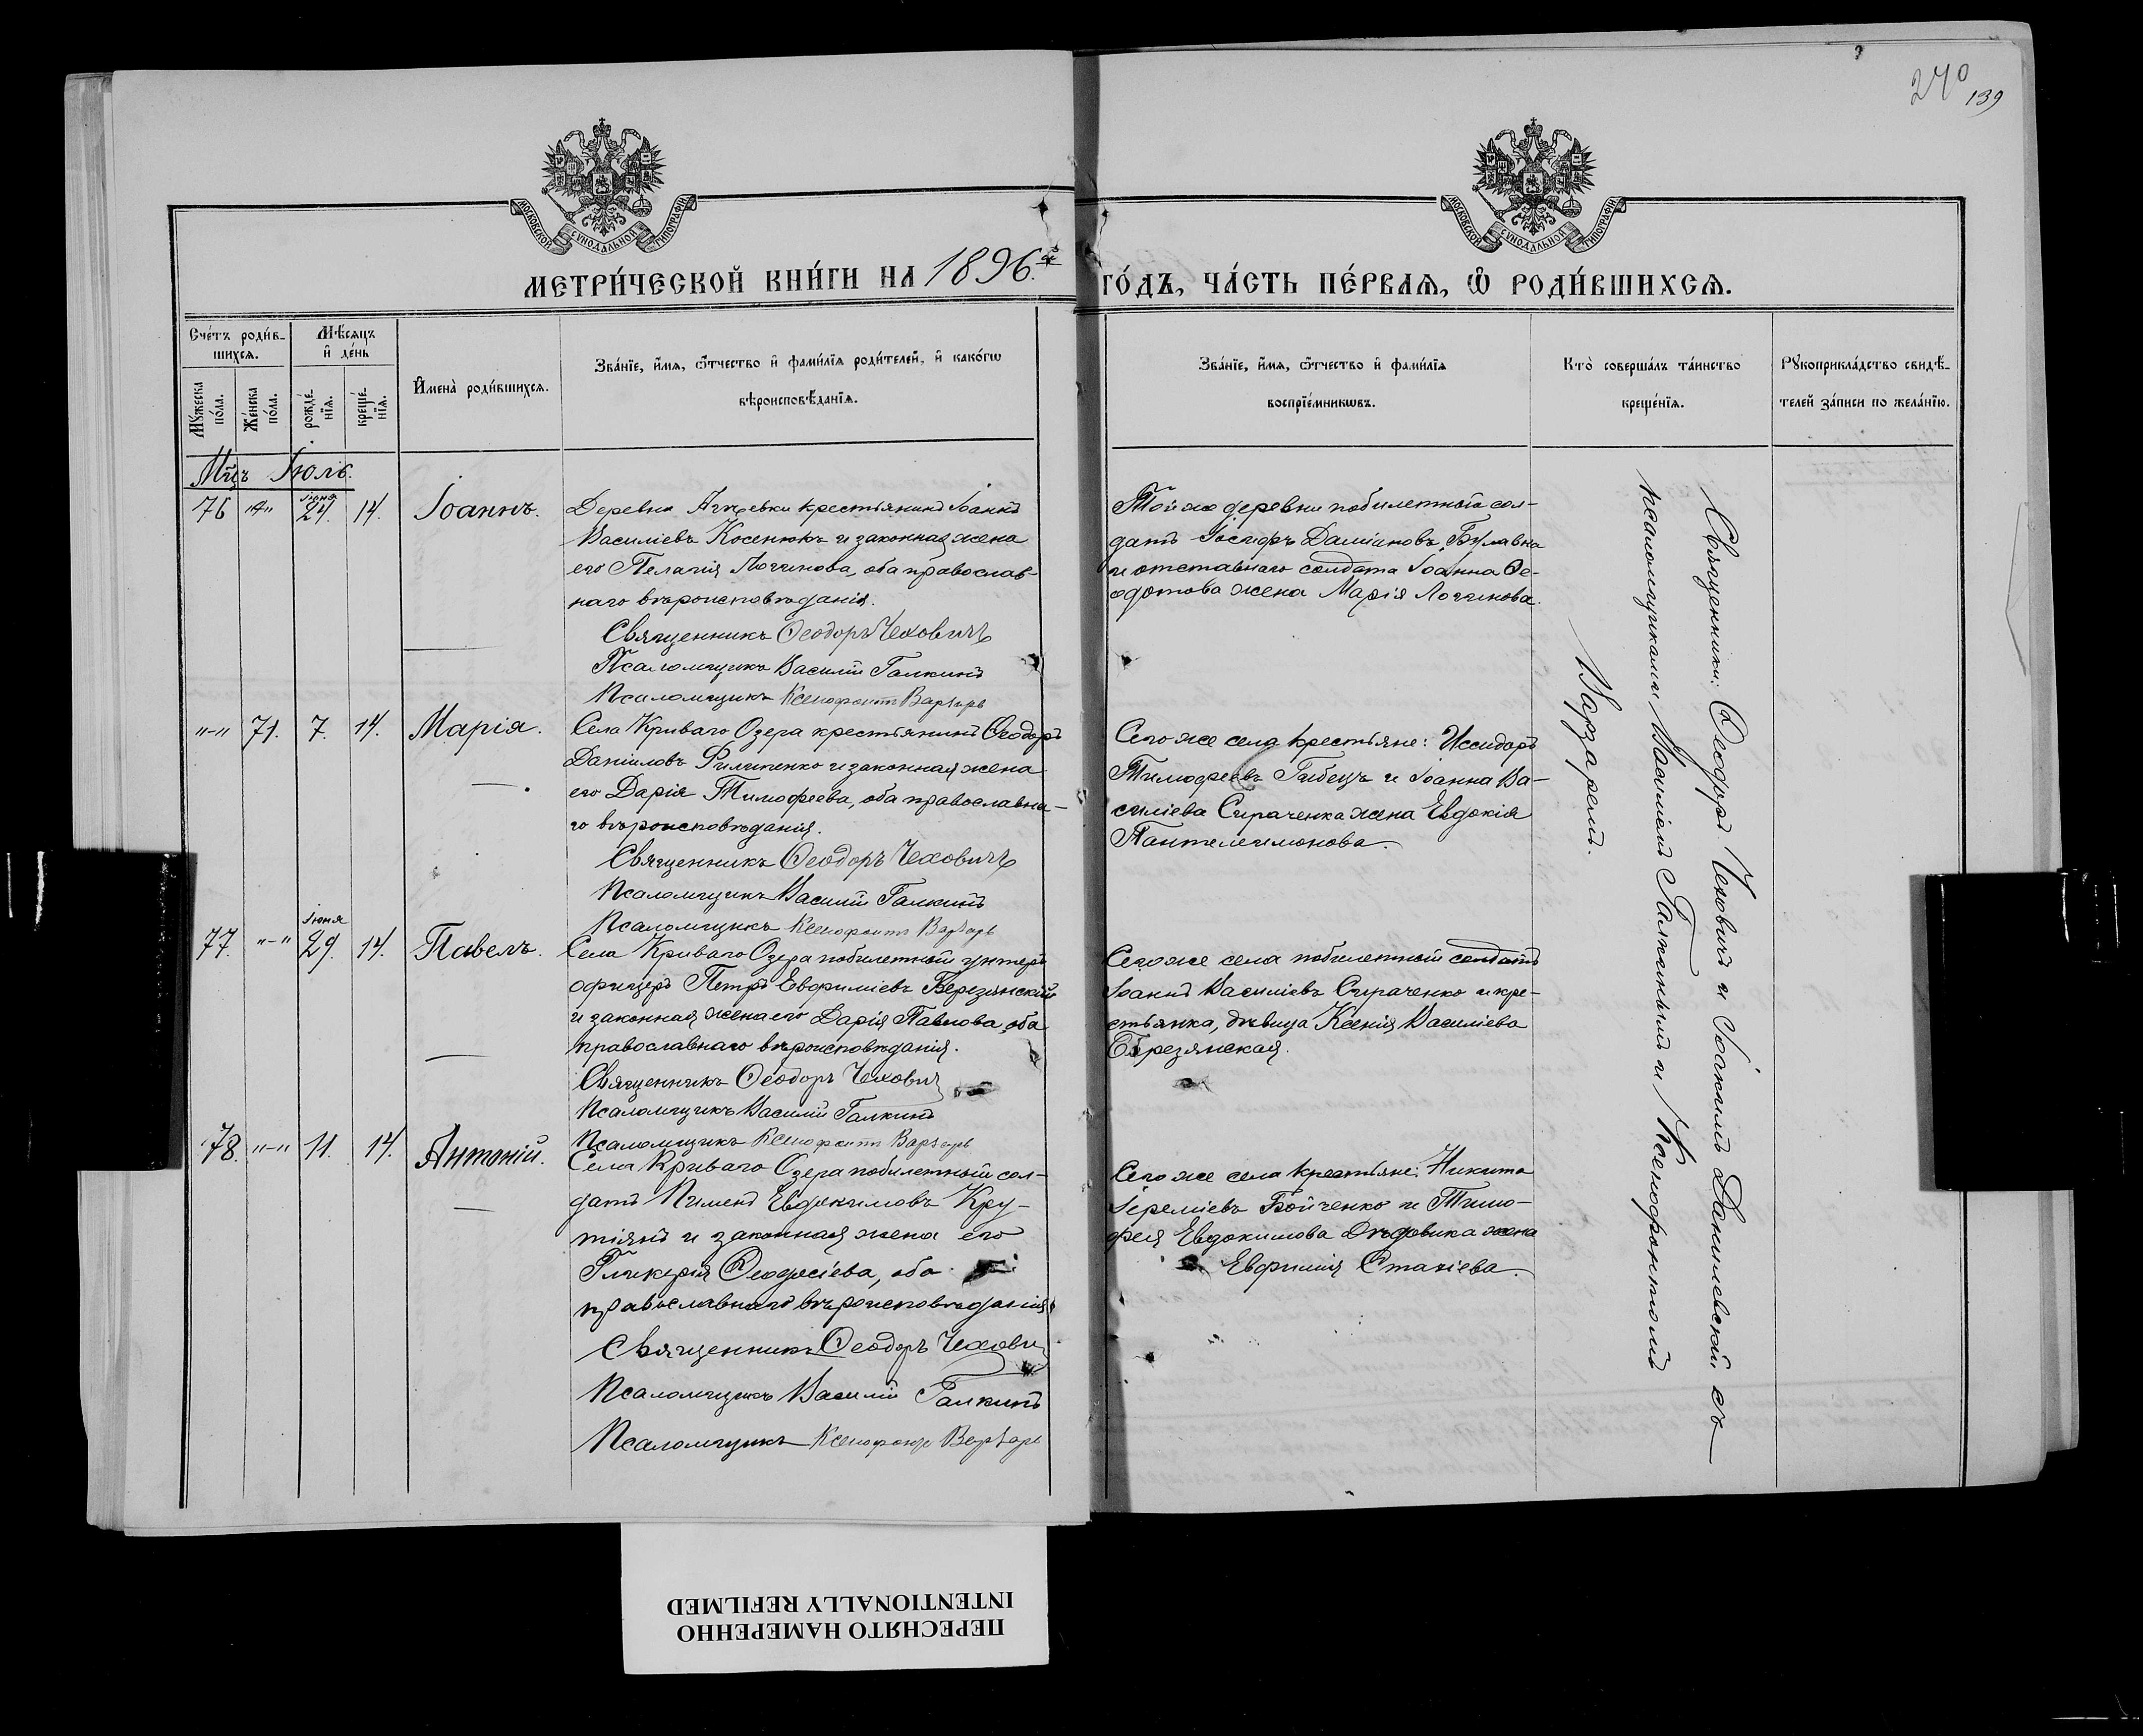 270
139
МОСКОВСКОЙ СѴНОДАЛЬНОЙ ТИПОГРАФІИ
МОСКОВСКОЙ СѴНОДАЛЬНОЙ ТИПОГРАФІИ
МЕТРИ́ЧЕСКОЙ КНИ́ГИ НА 1896.й
ГО́ДЪ, ЧА́СТЬ ПЕ́РВАЯ, Ѡ҆ РОДИ́ВШИХСЯ.
Сче́тъ роди́в-
шихся.
Мѣ́сяцъ
и҆ де́нь
Мꙋ́жеска
по́ла.
Же́нска
по́ла.
рожде́-
нїя.
креще́-
нїя.
И҆мена̀ роди́вшихся.
Зва́нїе, и҆́мя, ѻ҆́тчество и҆ фами́лїя роди́телей, и҆ како́гѡ
вѣроисповѣ́данїя.
Зва́нїе, и҆́мя, ѻ҆́тчество и҆ фами́лїя
воспрїе́мникѡвъ.
Кто̀ соверша́лъ та́инство
креще́нїя.
Рꙋкоприкла́дство свидѣ́-
телей за́писи по жела́нїю.
Мцъ Іюль.
76 "-" Іюня 24. 14. Іоаннъ.
Деревни крестьянинъ Іоаннъ
Василіевъ Косенюкъ и законная жена
его Пелагія Логгинова, оба православ-
наго вѣроисповѣданія.
Священникъ Ѳеодоръ Чеховичъ
Псаломщикъ Василій Галкинъ
Псаломщикъ Ксенофонтъ Варзарь
Той же деревни побилетный сол-
датъ Іосифъ Даміановъ Булавка
и отставнаго солдата Іоанна Ѳе-
одотова жена Марія Логгинова.
"-" 71. 7. 14. Марія.
Села Криваго Озера крестьянинъ Ѳеодоръ
Даніиловъ Филипенко и законная жена
его Дарія Тимофеева, оба православна-
го вѣроисповѣданія.
Священникъ Ѳеодоръ Чеховичъ
Псаломщикъ Василій Галкинъ
Псаломщикъ Ксенофонтъ Варзарь
Сего же села крестьяне: Исидоръ
Тимофеевъ и Іоанна Ва-
силіева Сираченка жена Евдокія
Пантелеимонова.
77. "-" Іюня 29. 14. Павелъ.
Села Криваго Озера побилетный унтеръ
офицеръ Петръ Евфиміевъ Березянскій
и законная жена его Дарія Павлова, оба
православнаго вѣроисповѣданія.
Священникъ Ѳеодоръ Чеховичъ
Псаломщикъ Василій Галкинъ
Псаломщикъ Ксенофонтъ Варзарь
Сего же села побилетный солдатъ
Іоаннъ Василіевъ Сираченко и кре-
стьянка, дѣвица Ксенія Василіева
Березянская.
78. "-" 11. 14. Антоній.
Села Криваго Озера побилетный сол-
датъ Пименъ Евдокимовъ Кру-
тіянъ и законная жена его
Гликерія Ѳеодосіева, оба
православнаго вѣроисповѣданія
Священникъ Ѳеодоръ Чехович
Псаломщикъ Василій Галкинъ
Псаломщикъ Ксенофонтъ Варзарь
Сего же села крестьяне: Никита
Іереміевъ Бойченко и Тимо-
фея Евдокимова Дѣдовика жена
Евфимія Стахіева.
Священники: Ѳеодоръ Чеховичъ и Іоакимъ Данилевскій съ
псаломщиками Василіемъ Галкинымъ и Ксенофонтомъ
Варзаремъ.
ПЕРЕСНЯТО НАМЕРЕННО
INTENTIONALLY REFILMED